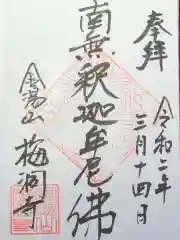 奉拝
令和二年
三月十四日
南無釈迦牟尼佛
金鳥山
梅洞寺